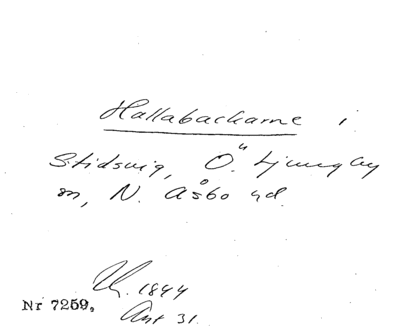 Hallabackarne i
Stidsvig, Ö. Ljungby
sn, N. Åsbo hd.
1844
Ant 31.
Nr 7259.